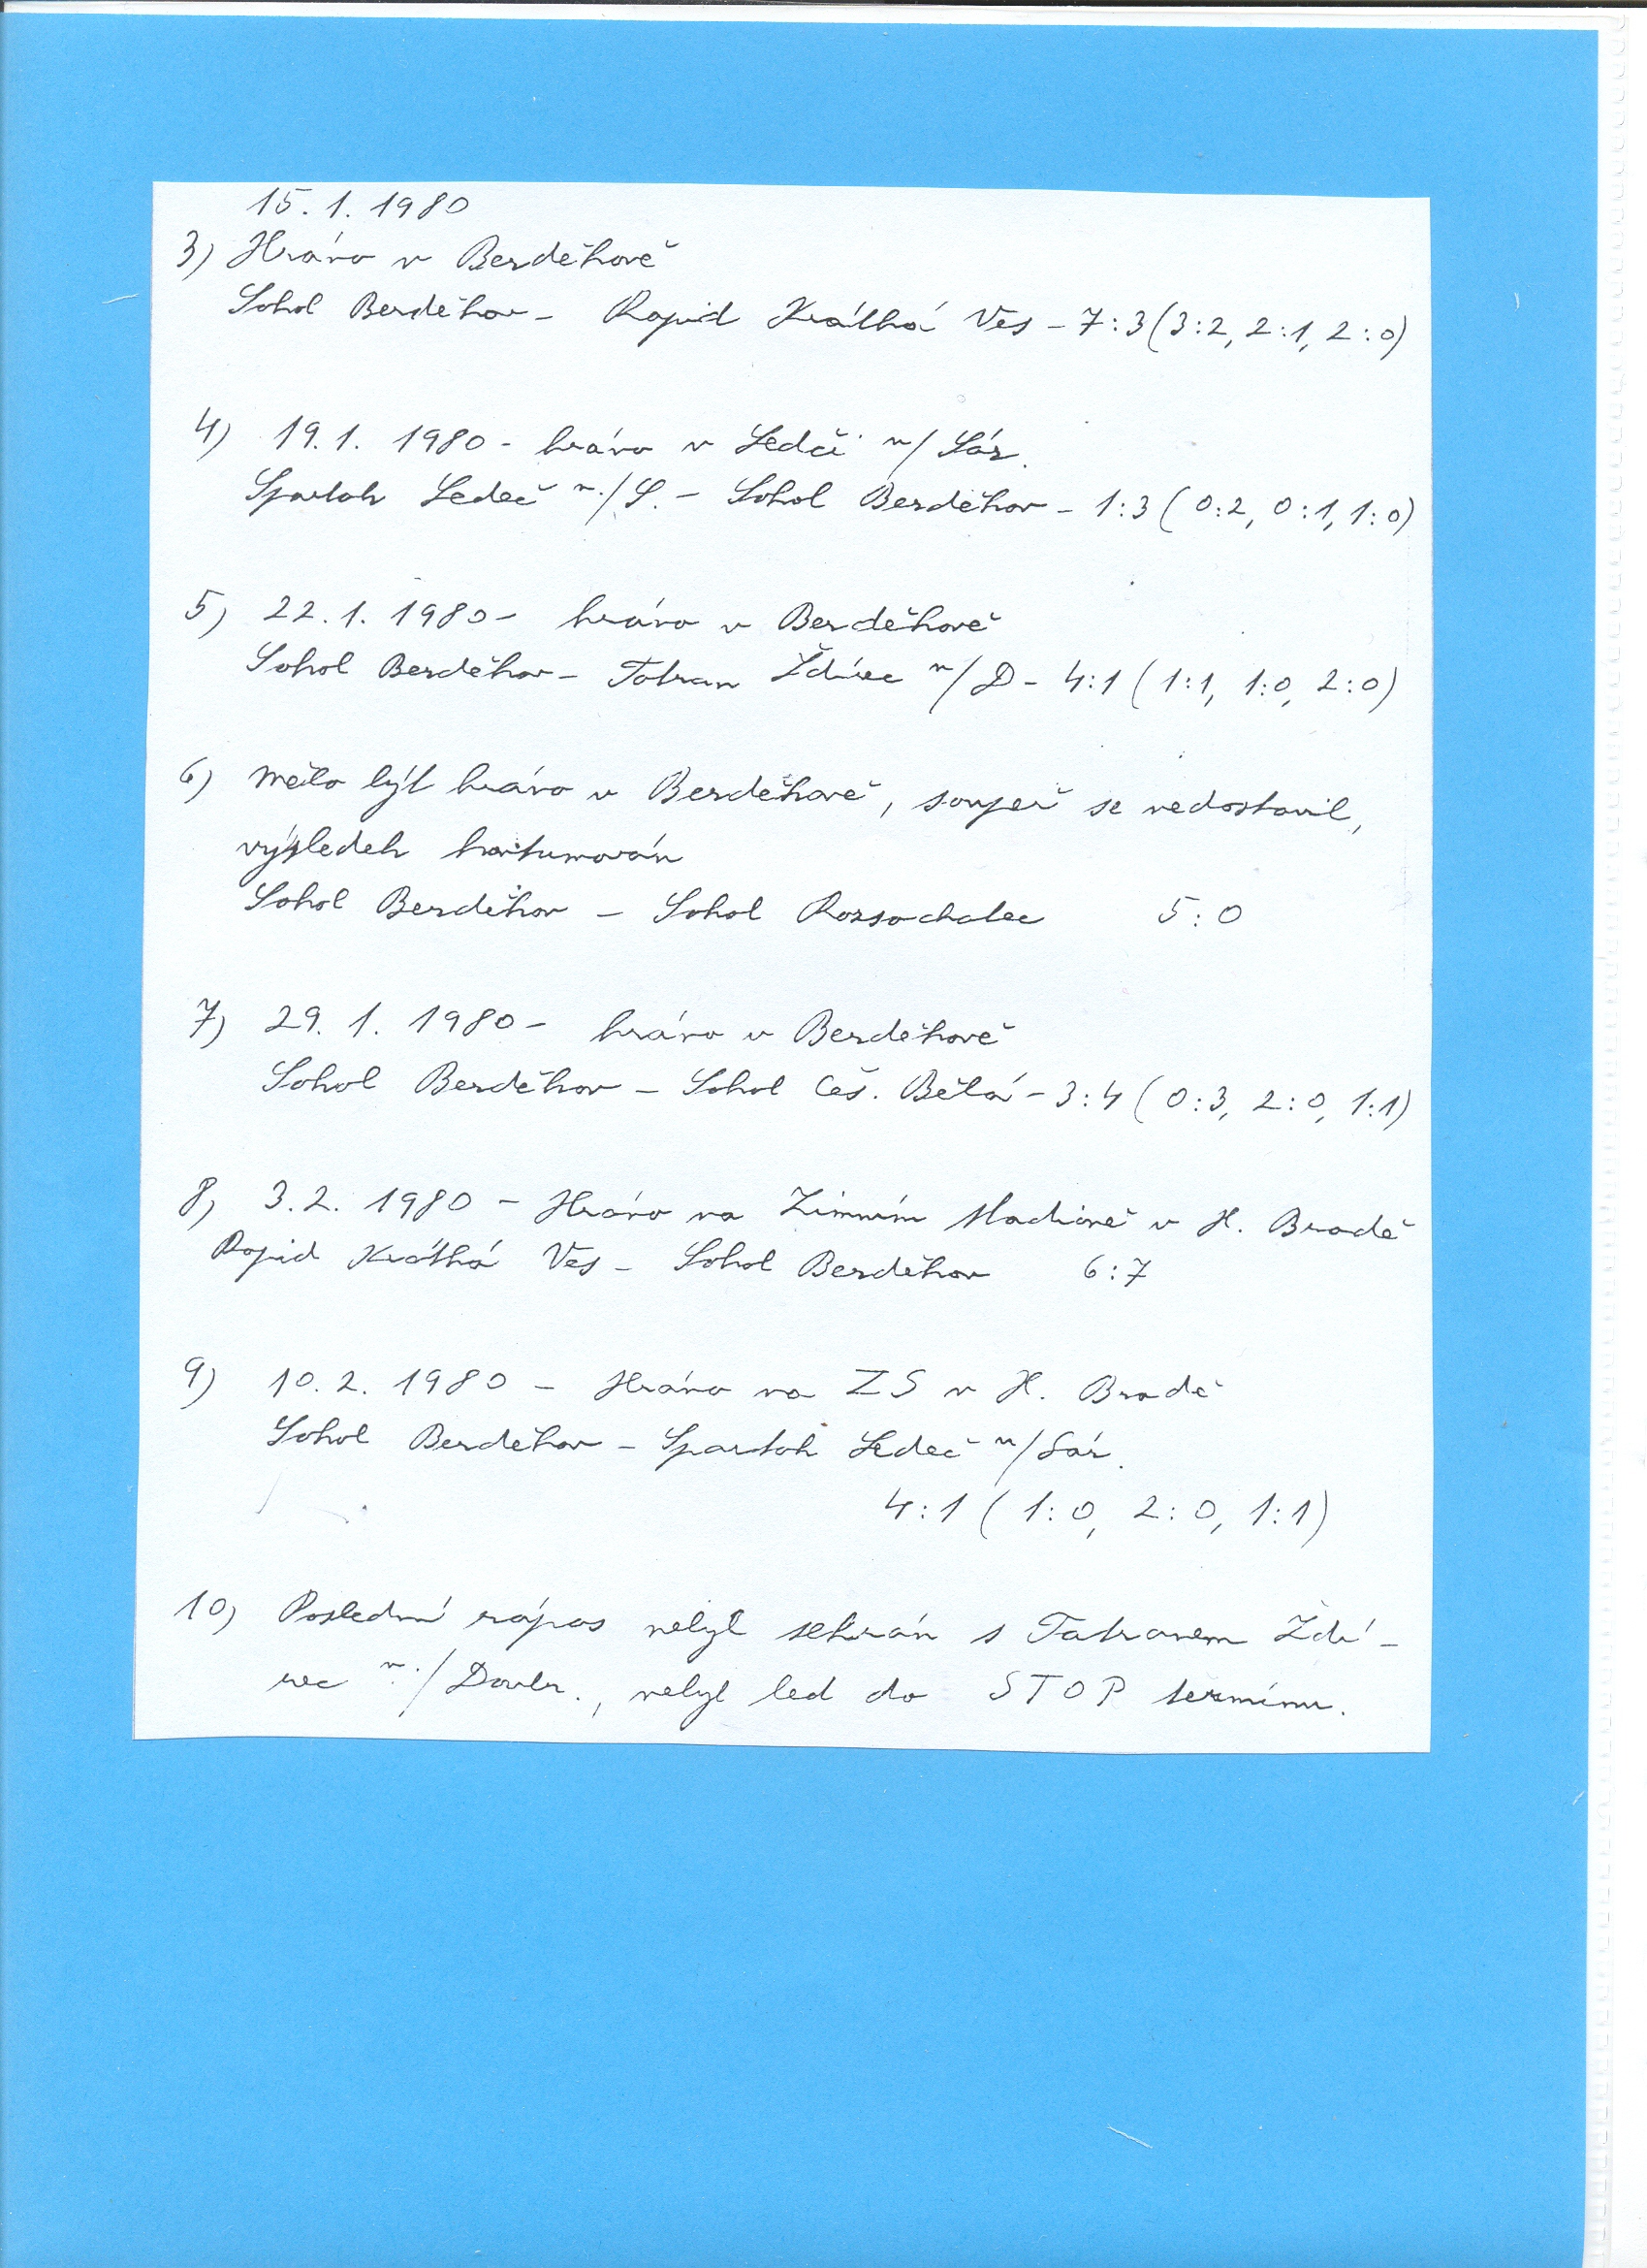 15. 1. 1980
3) Hráno v Berděkově
Sokol Berděkov – Rapid Krátká Ves – 7:3 (3:2, 2:1, 2:0)
4) 19. 1. 1980 - hráno v Ledči n/Sáz.
Spartak Ledeč n./S. – Sokol Berděkov – 1:3 (0:2, 0:1, 1:0)
5) 22. 1. 1980 – hráno v Berděkově
Sokol Berděkov – Tatran Ždírec n/D – 4:1 (1:1, 1:0, 2:0)
6) mělo být hráno v Berděkově, soupeř se nedostavil,
výsledek kontumován
Sokol Berděkov – Sokol Rozsochatec 5:0
7) 29. 1. 1980 – hráno v Berděkově
Sokol Berděkov – Sokol Čes. Bělá – 3:4 (0:3, 2:0, 1:1)
8) 3. 2. 1980 – Hráno na Zimním stadioně v H. Brodě
Rapid Krátká Ves – Sokol Berděkov 6:7
9) 10. 2. 1980 – Hráno na ZS v H. Brodě
Sokol Berděkov – Spartak Ledeč n/Sáz.
4:1 (1:0, 2:0, 1:1)
10) Poslední zápas nebyl sehrán s Tatranem Ždí-
rec n./Doubr., nebyl led do STOP termínu.